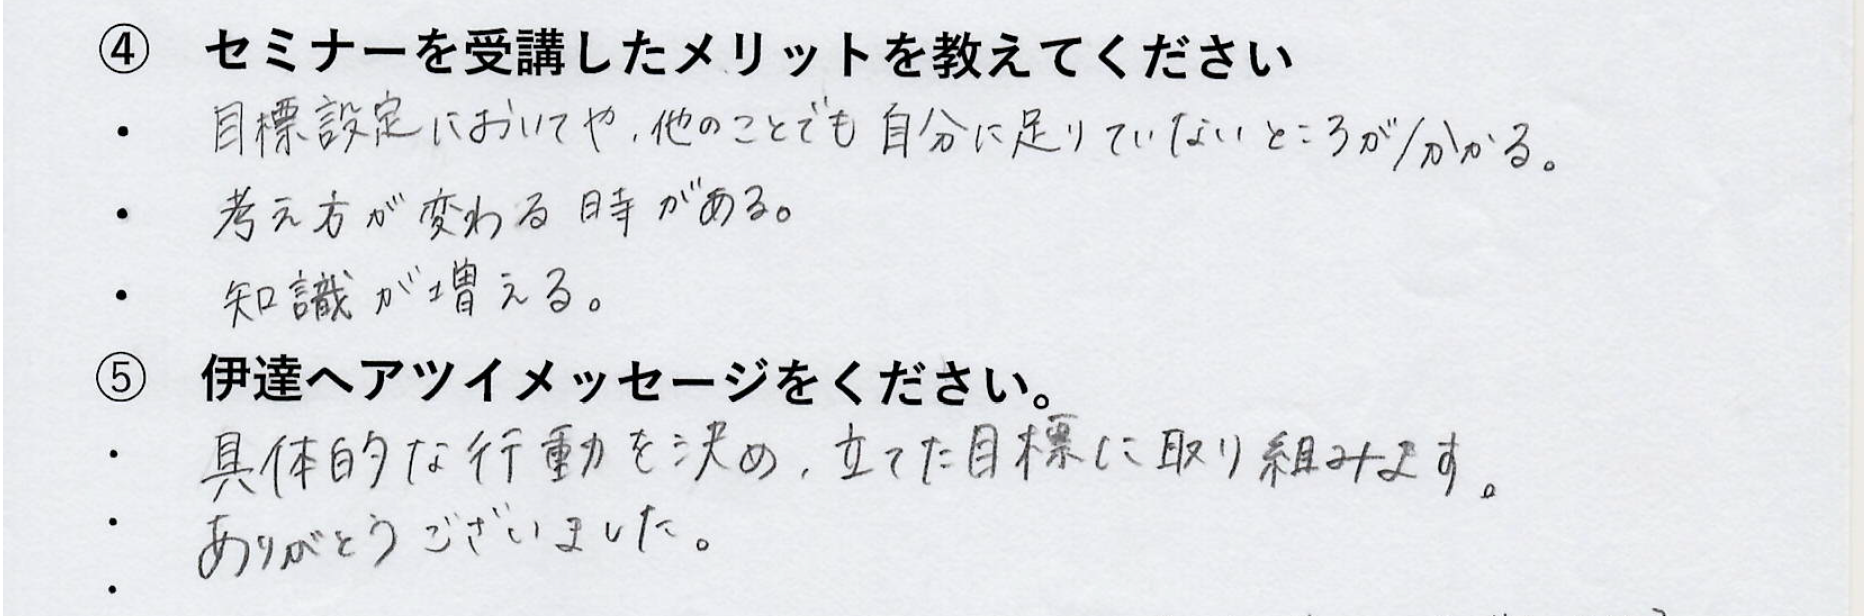 ④ セミナーを受講したメリットを教えてください
・ 目標設定においてや、他のことでも自分に足りていないところが分かる。
・ 考え方が変わる時がある。
・ 知識が増える。
⑤ 伊達へアツイメッセージをください。
・ 具体的な行動を決め、立てた目標に取り組みます。
・ ありがとうございました。
・